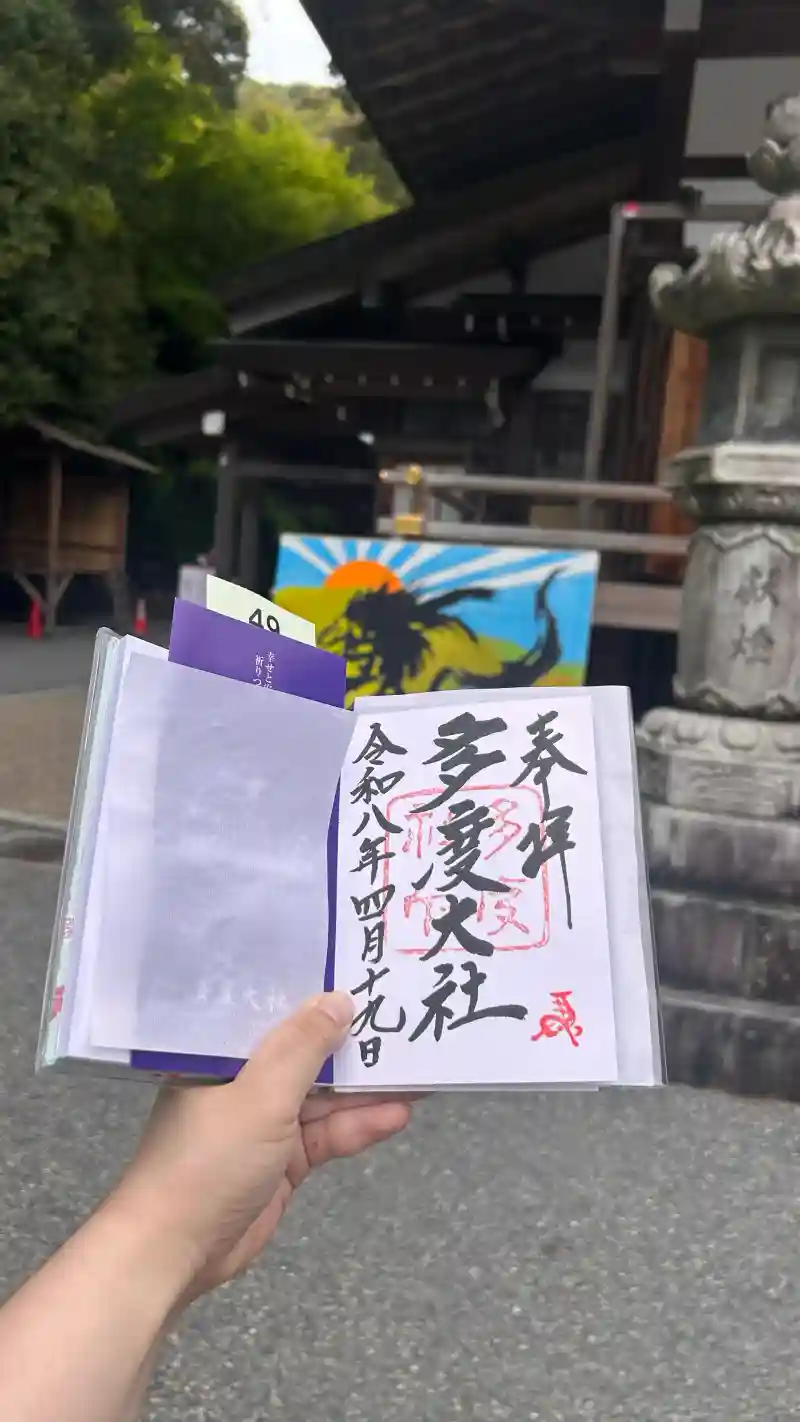 奉拝
多度大社
令和八年四月十九日
多度
49
幸せと
祈りつ
献燈